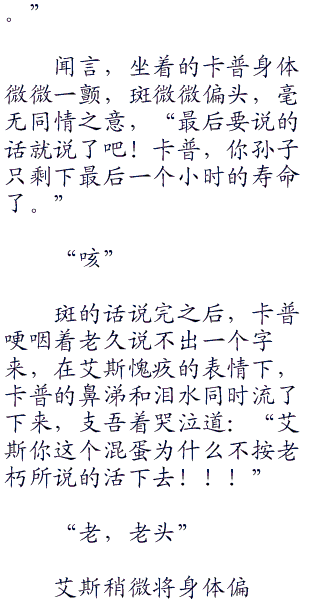 。”
闻言，坐着的卡普身体
微微一颤，斑微微偏头，毫
无同情之意，“最后要说的
话就说了吧！卡普，你孙子
只剩下最后一个小时的寿命
了。”
“咳”
斑的话说完之后，卡普
哽咽着老久说不出一个字
来，在艾斯愧疚的表情下，
卡普的鼻涕和泪水同时流了
下来，支吾着哭泣道：“艾
斯你这个混蛋为什么不按老
朽所说的活下去！！！”
“老，老头”
艾斯稍微将身体偏